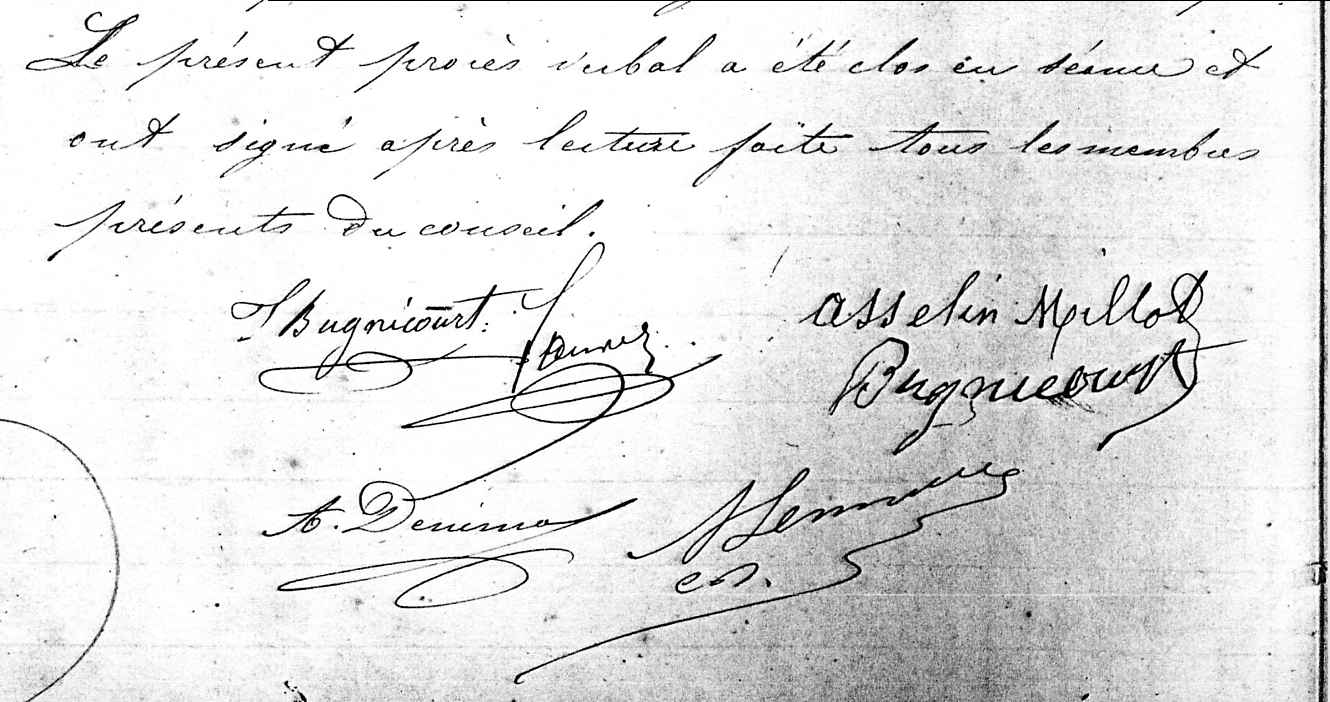 Le présent procès verbal a été clos en séance et
ont signé après lecture faite tous les membres
présents du conseil.
J Bugnicourt. Asselin Millot
Bugnicourt
A.